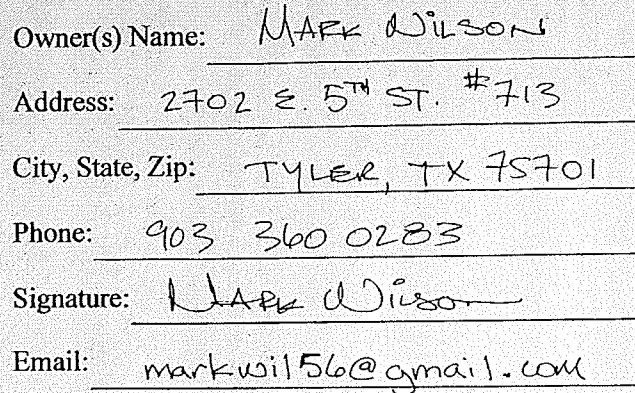 Owner(s) Name: MARK WILSON
Address: 2702 E. 5TH ST. #713
City, State, Zip: TYLER, TX 75701
Phone: 903 360 0283
Signature: MARK Wilson
Email: markwil56@gmail.com